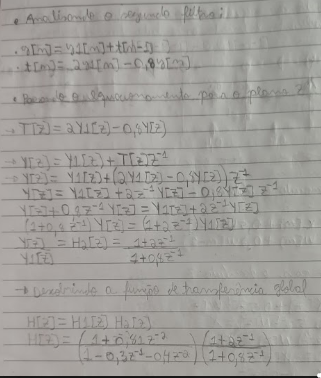 • Analisando o segundo filtro:
• y[n] = y1[n] + t[n-1]
• t[n] = 2y1[n] - 0,8y[n]
• Passando o equacionamento para o plano Z
→ T[z] = 2Y1[z] - 0,8Y[z]
→ Y[z] = Y1[z] + T[z]z⁻¹
→ Y[z] = Y1[z] + (2Y1[z] - 0,8Y[z])z⁻¹
Y[z] = Y1[z] + 2z⁻¹Y1[z] - 0,8Y[z]z⁻¹
Y[z] + 0,8z⁻¹Y[z] = Y1[z] + 2z⁻¹Y[z]
(1+0,8z⁻¹)Y[z] = (1+2z⁻¹)Y1[z]
Y[z] = H2[z] = 1+2z⁻¹
Y1[z] 1+0,8z⁻¹
→ Descobrindo a função de transferência global
H[z] = H1[z] H2[z]
H[z] = (1+0,81z⁻²) (1+2z⁻¹)
(1-0,3z⁻¹-0,4z⁻²) (1+0,8z⁻¹)